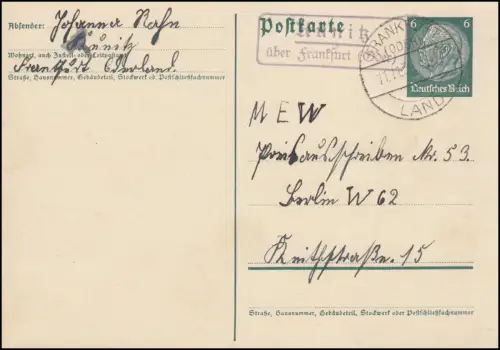 Absender: Johanna Rahn
Kunitz
Wohnort, auch Zustell- oder Leitpostamt
Frankfurt Oderland
Straße, Hausnummer, Gebäudeteil, Stockwerk od. Postschließfachnummer
Postkarte
Kunitz
über Frankfurt
FRANKFURT
(ODER)
LAND
6 6
Deutsches Reich
MEW
Preisausschreiben Nr. 53.
Berlin W 62
Keithstraße. 15
Straße, Hausnummer, Gebäudeteil, Stockwerk oder Postschließfachnummer